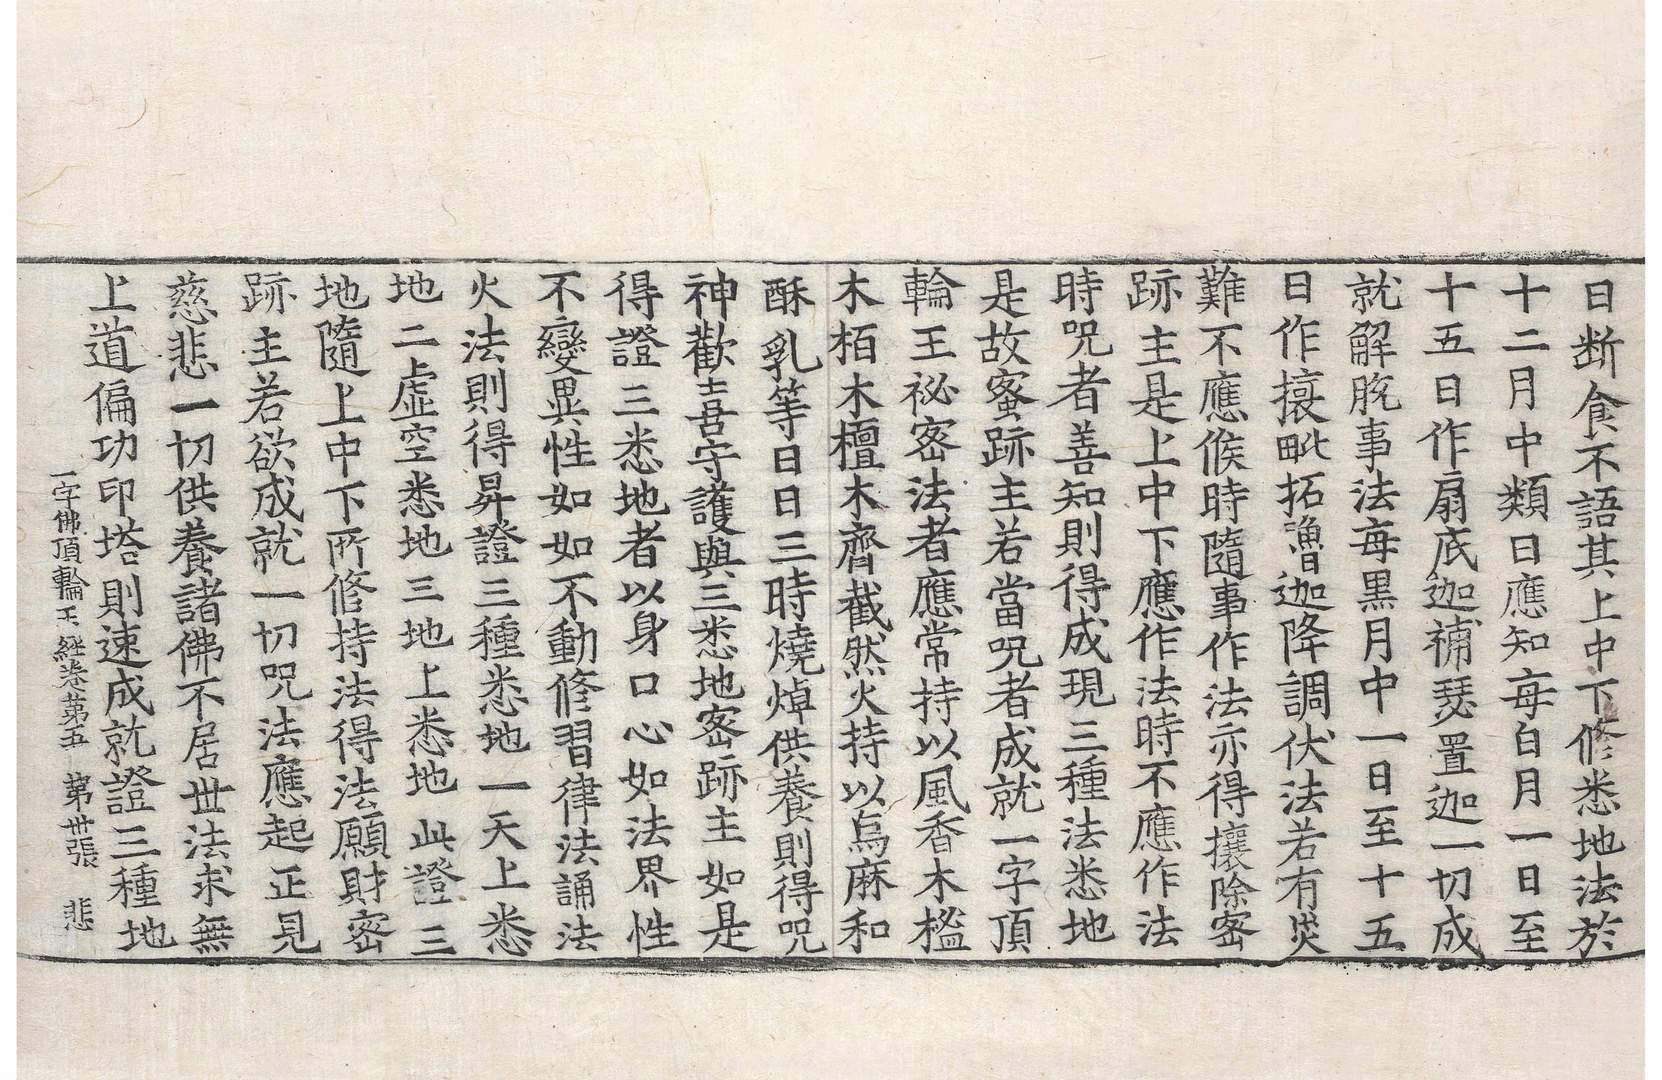 日断食不語其上中下修悉地法於
十二月中類日應知每白月一日至
十五日作扇底迦補瑟置迦一切成
就解脫事法每黒月中一日至十五
日作攘毗拓嚕迦降調伏法若有災
難不應候時隨事作法亦得攘除密
跡主是上中下應作法時不應作法
時呪者善知則得成現三種法悉地
是故蜜跡主若當呪者成就一字頂
輪王祕密法者應常持以風香木榓
木栢木檀木齊截然火持以烏麻和
酥乳等日日三時燒焯供養則得呪
神歡喜守護與三悉地密跡主如是
得證三悉地者以身口心如法界性
不變異性如如不動修習律法誦法
火法則得昇證三種悉地一天上悉
地二虛空悉地三地上悉地此證三
地隨上中下所修持法得法願財密
跡主若欲成就一切呪法應起正見
慈悲一切供養諸佛不居世法求無
上道偏功印塔則速成就證三種地
一字佛頂輪王経卷第五 第卅張 悲